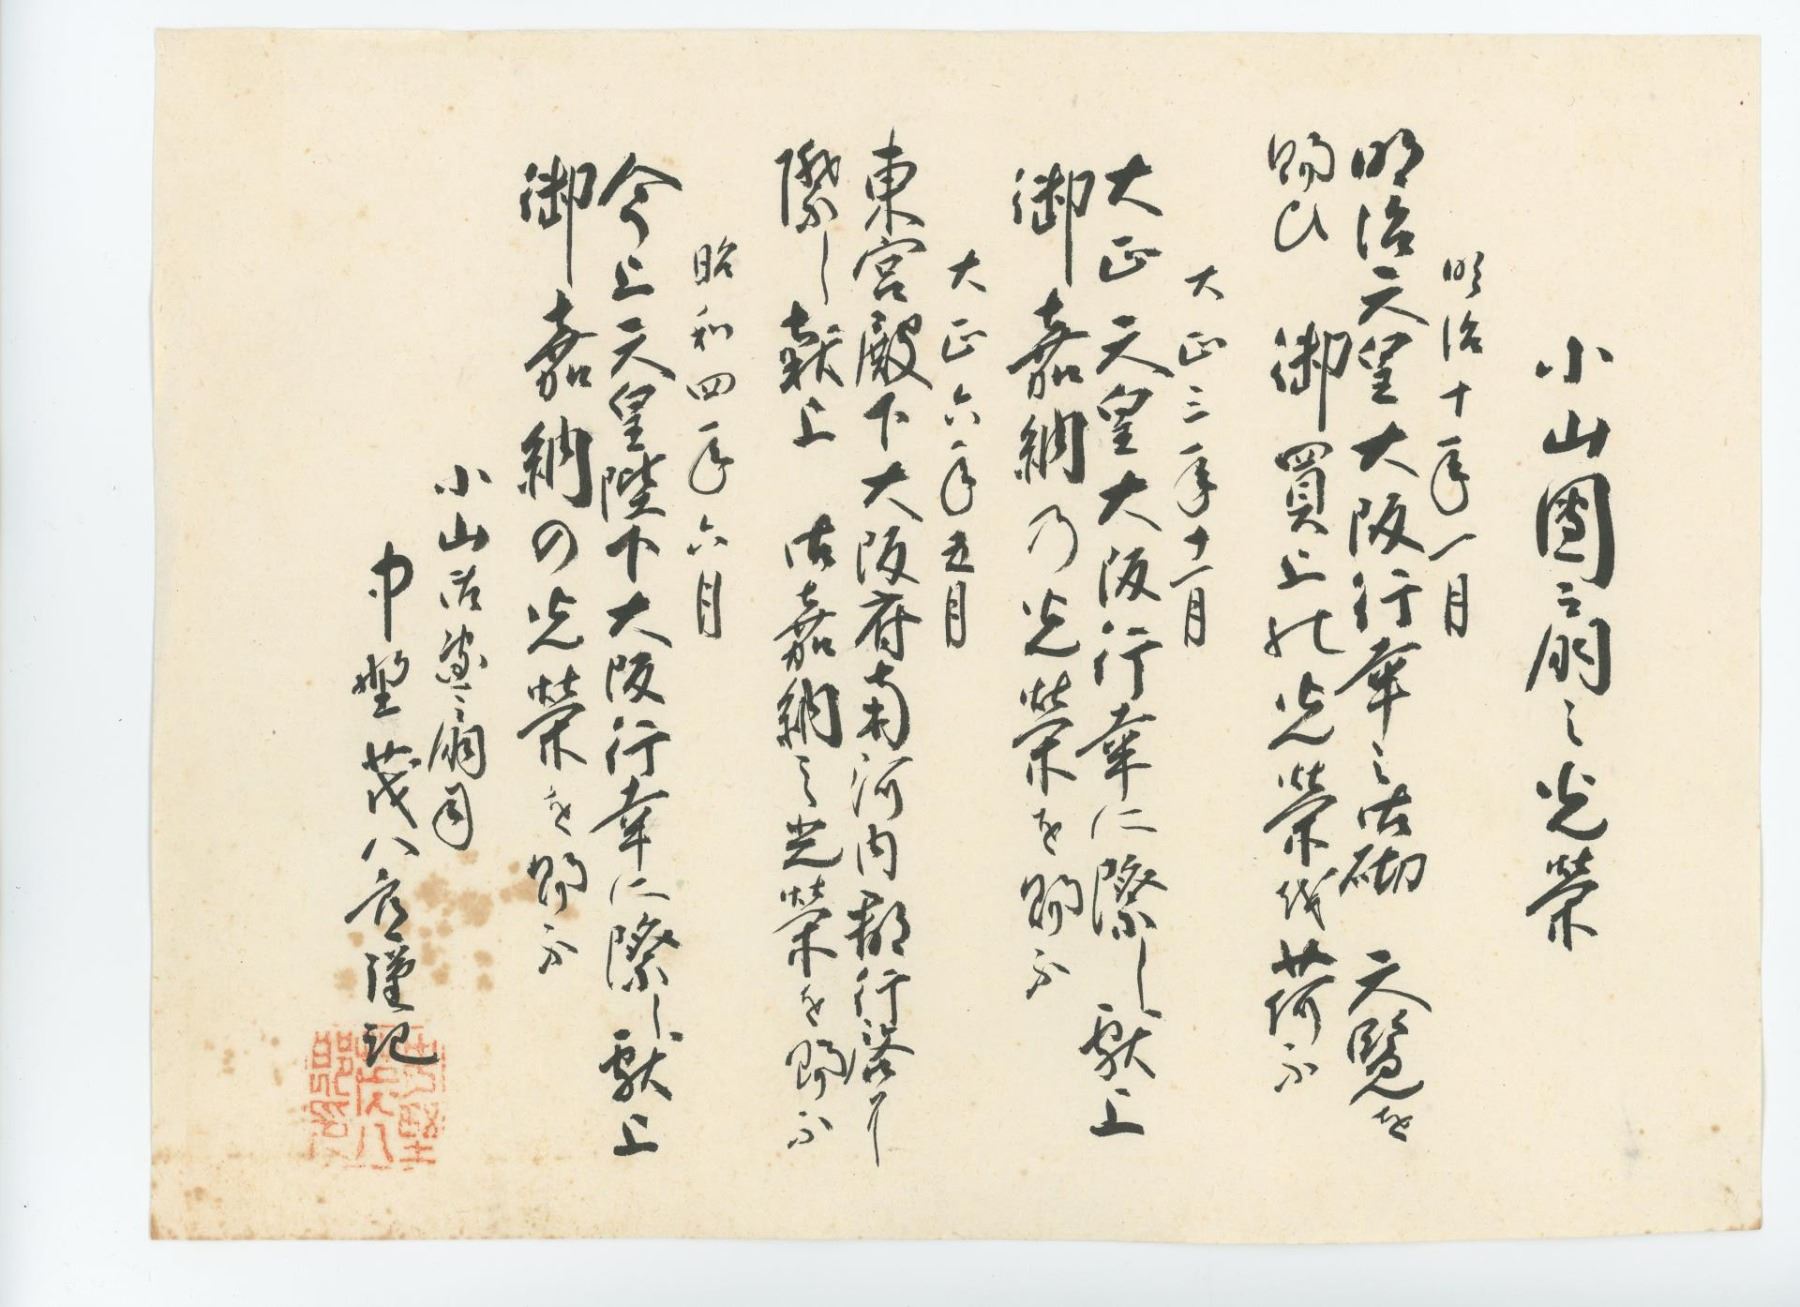 小山團扇之光榮
明治十年一月
明治天皇大阪行幸之御砌　天覧を
賜ひ　御買上の光榮を荷ふ
大正三年十一月
大正天皇大阪行幸に際し献上
御嘉納乃光榮を賜ふ
大正六年五月
東宮殿下大阪府南河内郡行啓に
際し献上　御嘉納之光榮を賜ふ
昭和四年六月
今上天皇陛下大阪行幸に際し献上
御嘉納の光榮を賜ふ
小山 團扇司
中埜茂八郎謹記